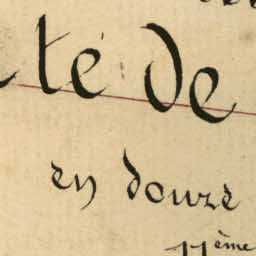 té de
en douze
11ème